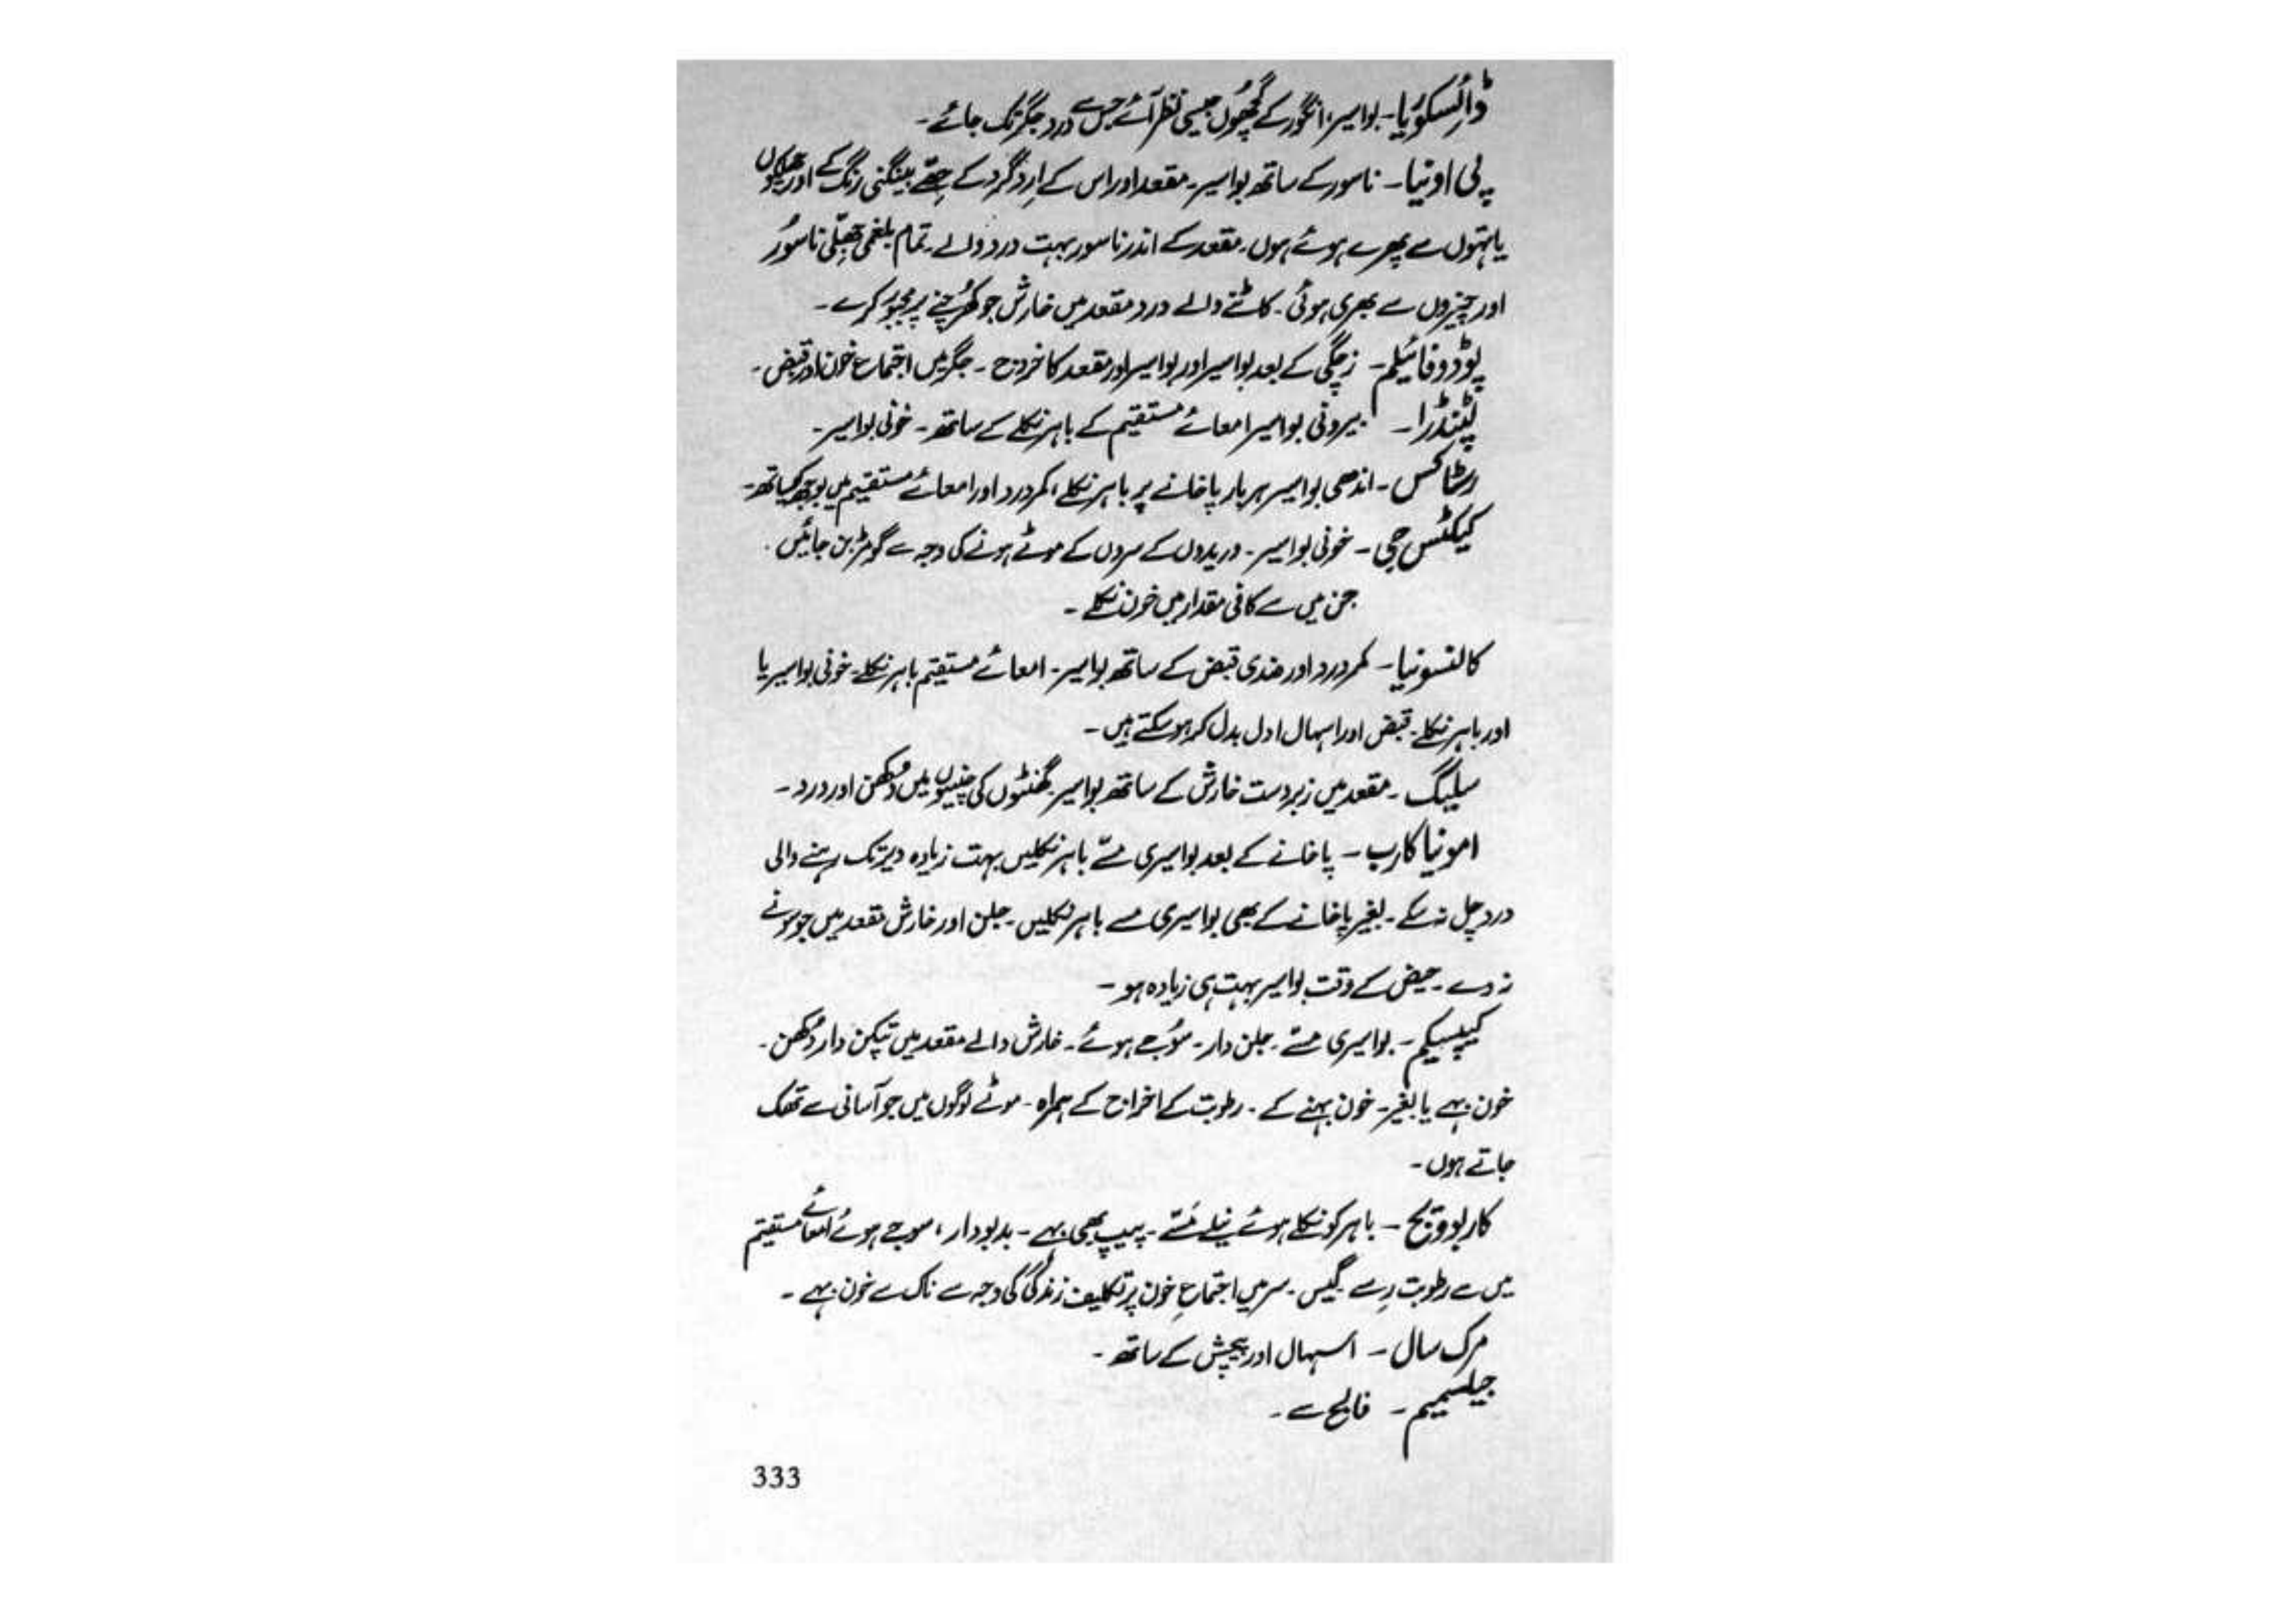 ڈائسکوریا۔ بواسیر، انگور کے گچھوں جیسی نظر آئے جس سے درد جگر تک جائے۔
پی اونیا۔ ناسور کے ساتھ بواسیر۔ مقعد اور اس کے اِردگرد کے حِصّے بینگنی رنگ کے اور چھلکوں
یا تہوں سے بھرے ہوئے ہوں۔ مقعد کے اندر ناسور بہت درد والے۔ تمام بلغمی جھِلّی ناسُور
اور چیروں سے بھری ہوئی۔ کاٹنے والے درد مقعد میں خارش جو کھُرچنے پر مجبُور کرے۔
پوڈوفائیلم۔ زچگی کے بعد بواسیر اور بواسیر اور مقعد کا خروج۔ جگر میں اجتماع خون اور قبض۔
پٹنڈرا۔ بیرونی بواسیر امعائے مستقیم کے باہر نکلنے کے ساتھ۔ خونی بواسیر۔
رسٹاکس۔ اندھی بواسیر ہر بار پاخانے پر باہر نکلے، کمردرد اور امعائے مستقیم میں بوجھ کیساتھ۔
کیکٹس جی۔ خونی بواسیر۔ وریدوں کے سروں کے موٹے ہونے کی وجہ سے گومڑ بن جائیں۔
جن میں سے کافی مقدار میں خون نکلے۔
کالنسونیا۔ کمردرد اور ضدی قبض کے ساتھ بواسیر۔ امعائے مستقیم باہر نکلے۔ خونی بواسیر یا
اور باہر نکلے۔ قبض اور اسہال ادل بدل کر ہو سکتے ہیں۔
سیلیگ۔ مقعد میں زبردست خارش کے ساتھ بواسیر گھنٹوں کی چنیوں میں دُکھن اور درد۔
امونیا کارب۔ پاخانے کے بعد بواسیری مسّے باہر نکلیں بہت زیادہ دیر تک رہنے والی
درد چل نہ سکے۔ بغیر پاخانے کے بھی بواسیری مسے باہر نکلیں۔ جلن اور خارش مقعد میں جو سونے
نہ دے۔ حیض کے وقت بواسیر بہت ہی زیادہ ہو۔
کیپسیکم۔ بواسیری مسّے۔ جلن دار۔ سُوجے ہوئے۔ خارش والے مقعد میں تپکن دار دُکھن۔
خون بہے یا بغیر۔ خون بہنے کے۔ رطوبت کے اخراج کے ہمراہ۔ موٹے لوگوں میں جو آسانی سے تھک
جاتے ہوں۔
کاربووَیج۔ باہر کو نکلے ہوئے نیلے مَسّے۔ پیپ بھی بہے۔ بدبودار، سوجے ہوئے امعائے مستقیم
میں سے رطوبت رِسے۔ گیس۔ سر میں اجتماعِ خون پرتکلیف زندگی کی وجہ سے ناک سے خون بہے۔
مرک سال۔ اسہال اور پیچش کے ساتھ۔
جیلسیمیم۔ فالج سے۔
333